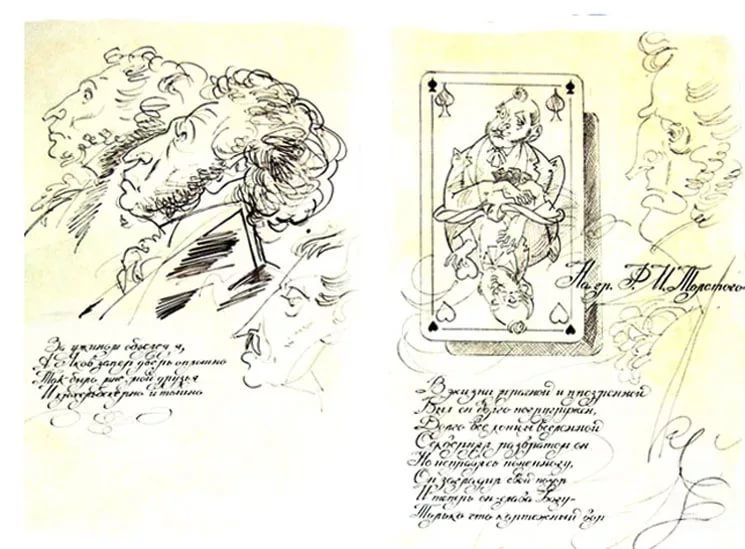 За ужином объелся я,
А Яков запер дверь оплошно
Так было мне, мои друзья
И кюхельбекерно и тошно
На гр. Ф. И. Толстого
В жизни мрачной и презренной
Был он долго погружен,
Долго все концы вселенной
Осквернял развратом он
Но исправясь понемногу,
Он загладил свой позор
И теперь он слава Богу-
Только что картежный вор